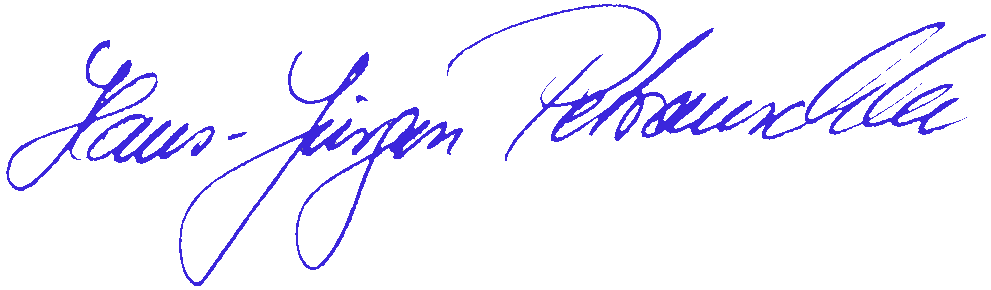 Hans-Jürgen Petrauschke